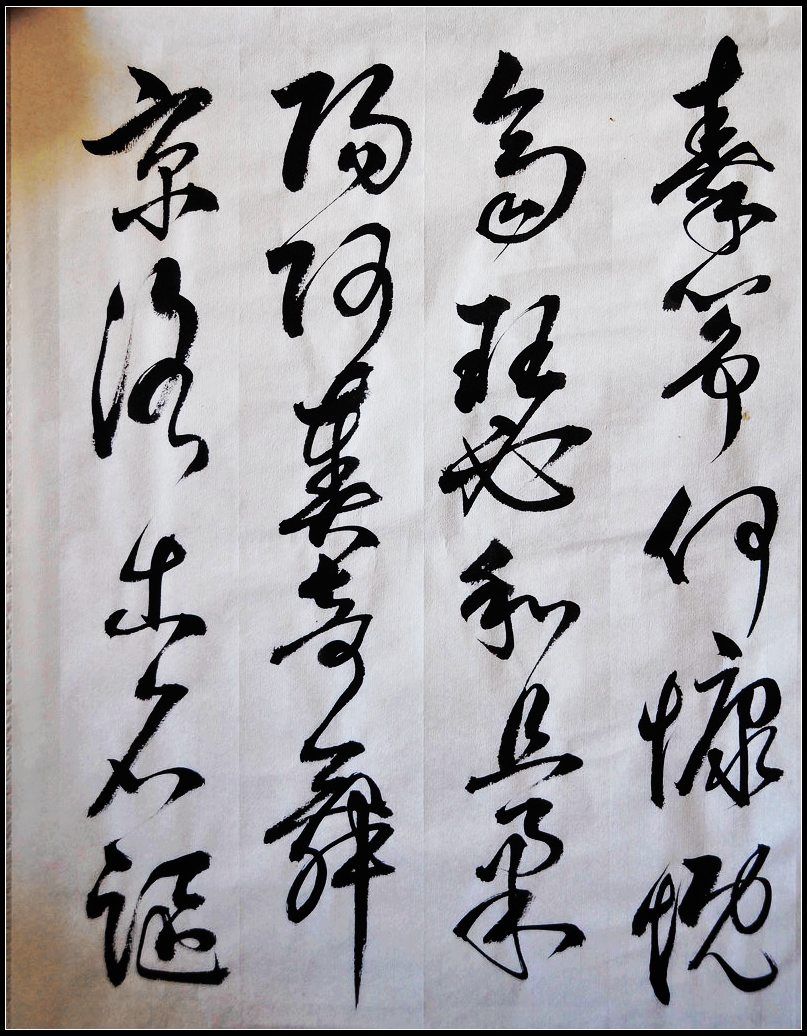 秦箏何慷慨
齊瑟和且柔
陽阿奏奇舞
京洛出名謳